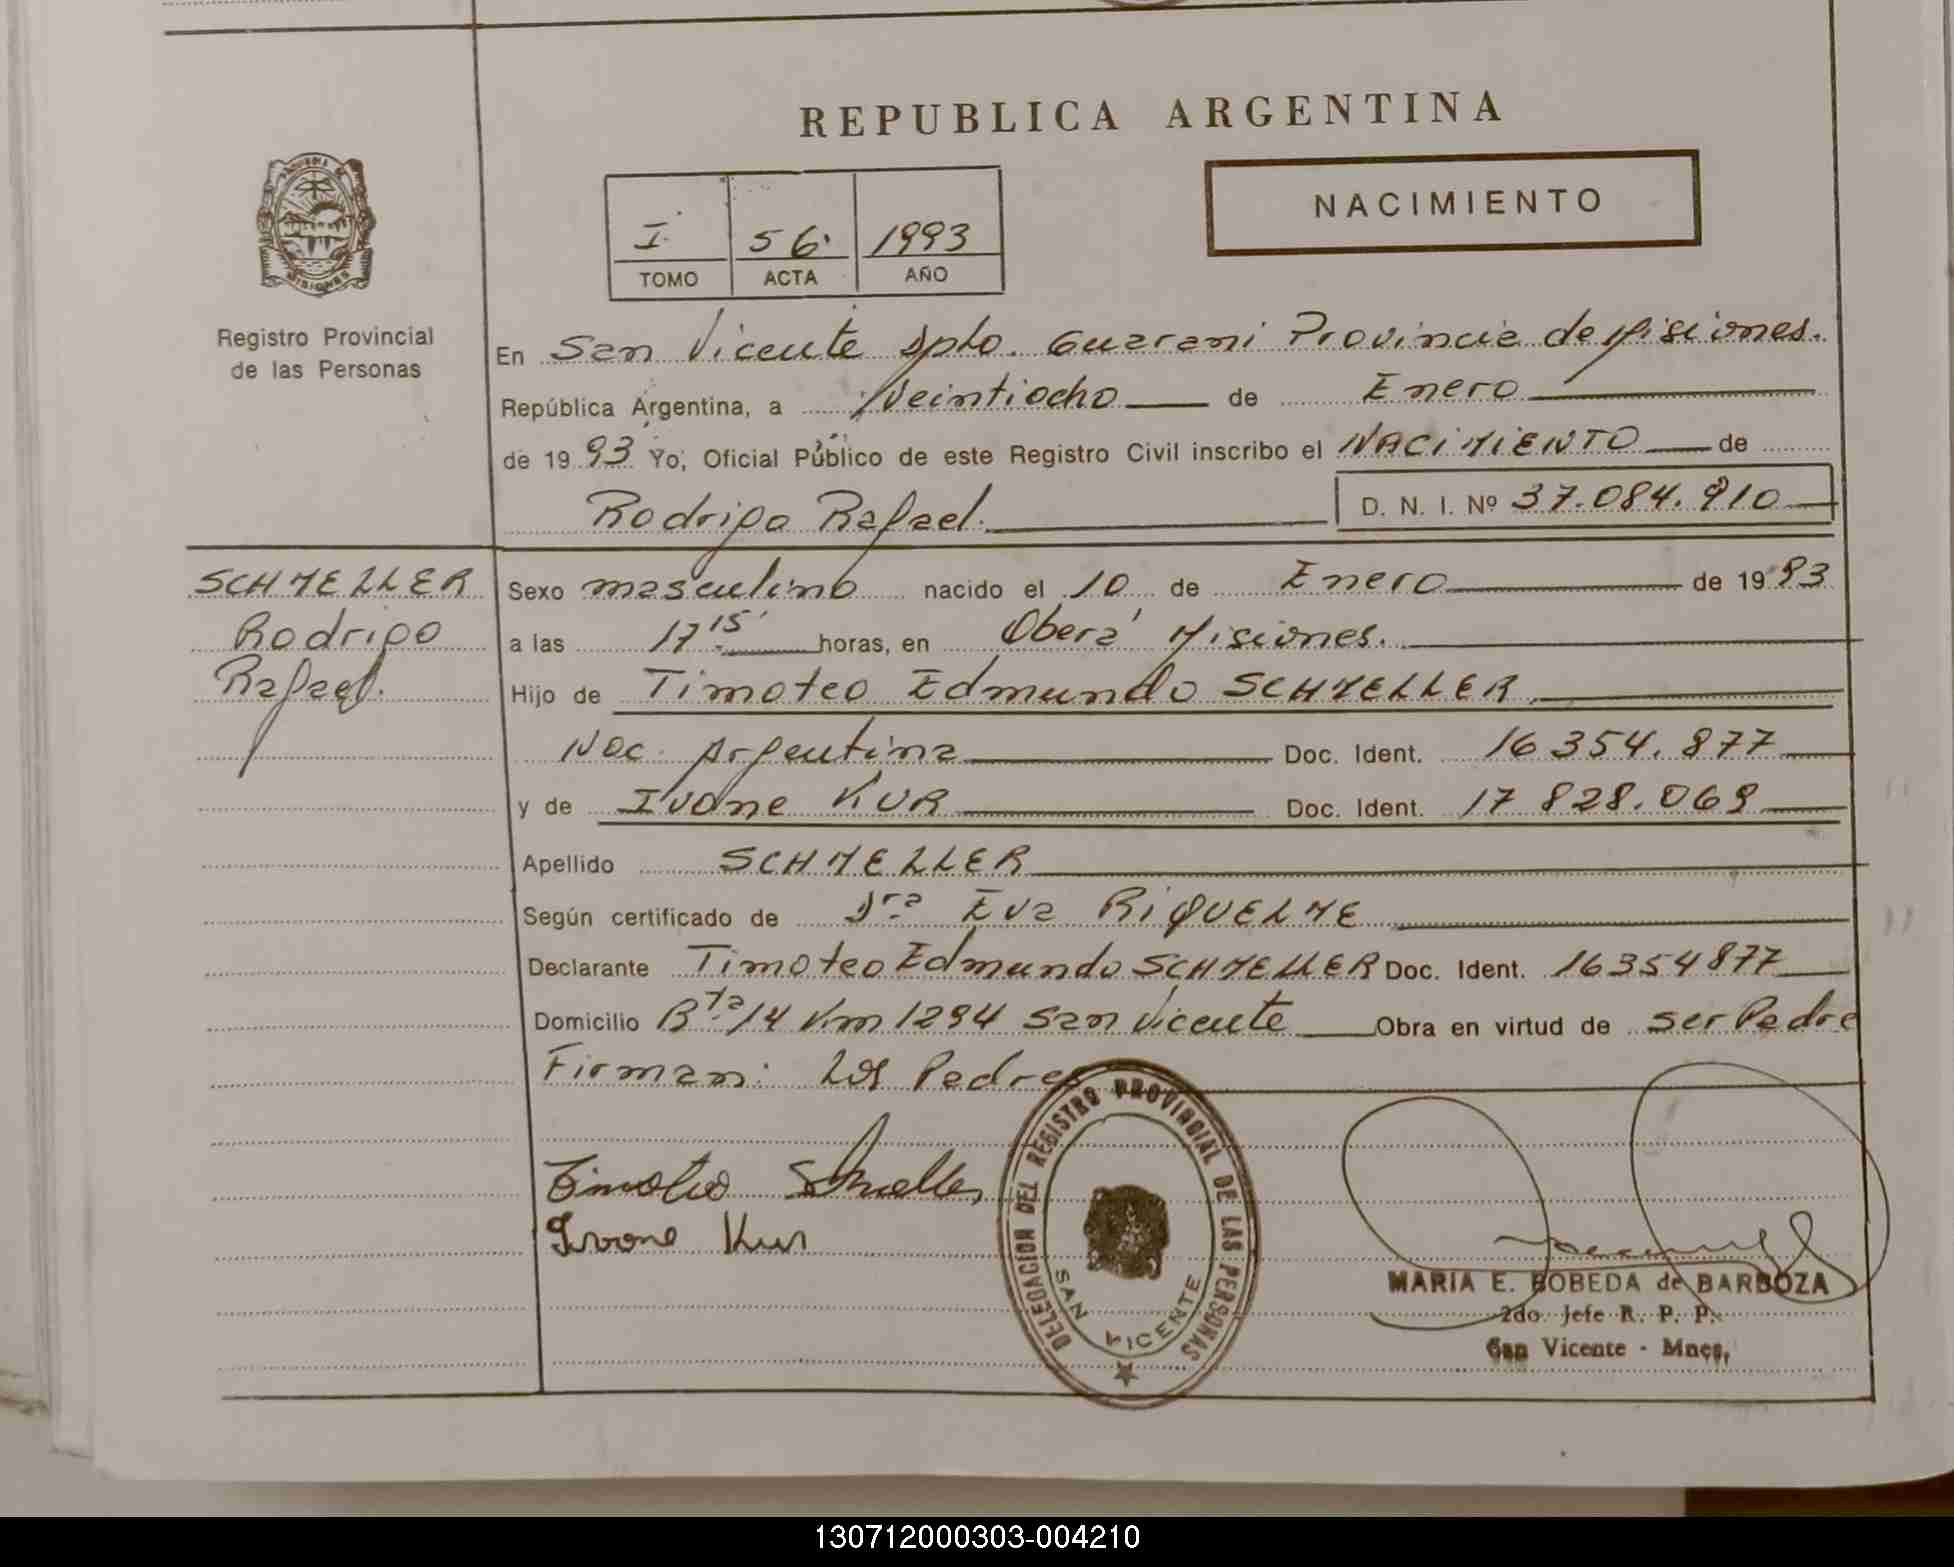 REPUBLICA ARGENTINA
NACIMIENTO
I 56 1993
TOMO ACTA AÑO
Registro Provincial
de las Personas
En San Vicente Dpto. Guarani Provincia de Misiones.
República Argentina, a Veintiocho de Enero
de 1993 Yo, Oficial Público de este Registro Civil inscribo el NACIMIENTO de
Rodrigo Rafael. D. N. I. Nº 37.084.910
SCHMELLER
Rodrigo
Rafael.
Sexo masculino nacido el 10 de Enero de 1993
a las 17 15' horas, en Oberá Misiones.
Hijo de Timoteo Edmundo SCHMELLER
Nac. Argentina Doc. Ident. 16 354.877
y de Ivone KUR Doc. Ident. 17 828.069
Apellido SCHMELLER
Según certificado de Dra Eva RIQUELME
Declarante Timoteo Edmundo SCHMELLER Doc. Ident. 16354877
Domicilio Rta/14 Km 1294 San Vicente Obra en virtud de ser Padre
Firman: Los Padres
Timoteo Schmeller
Ivone Kur
DELEGACION DEL REGISTRO PROVINCIAL DE LAS PERSONAS
SAN VICENTE
MARIA E. BOBEDA de BARBOZA
2do. Jefe R. P. P.
San Vicente - Mnes.
130712000303-004210